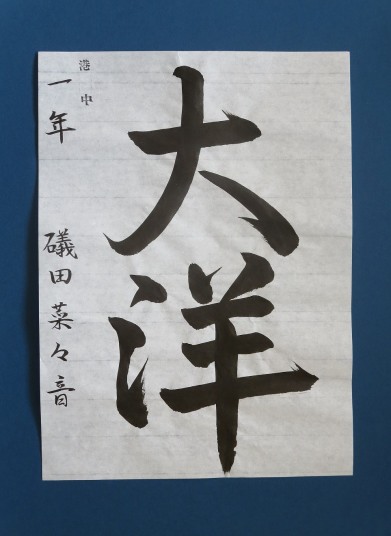 大洋
港中
一年 礒田菜々音